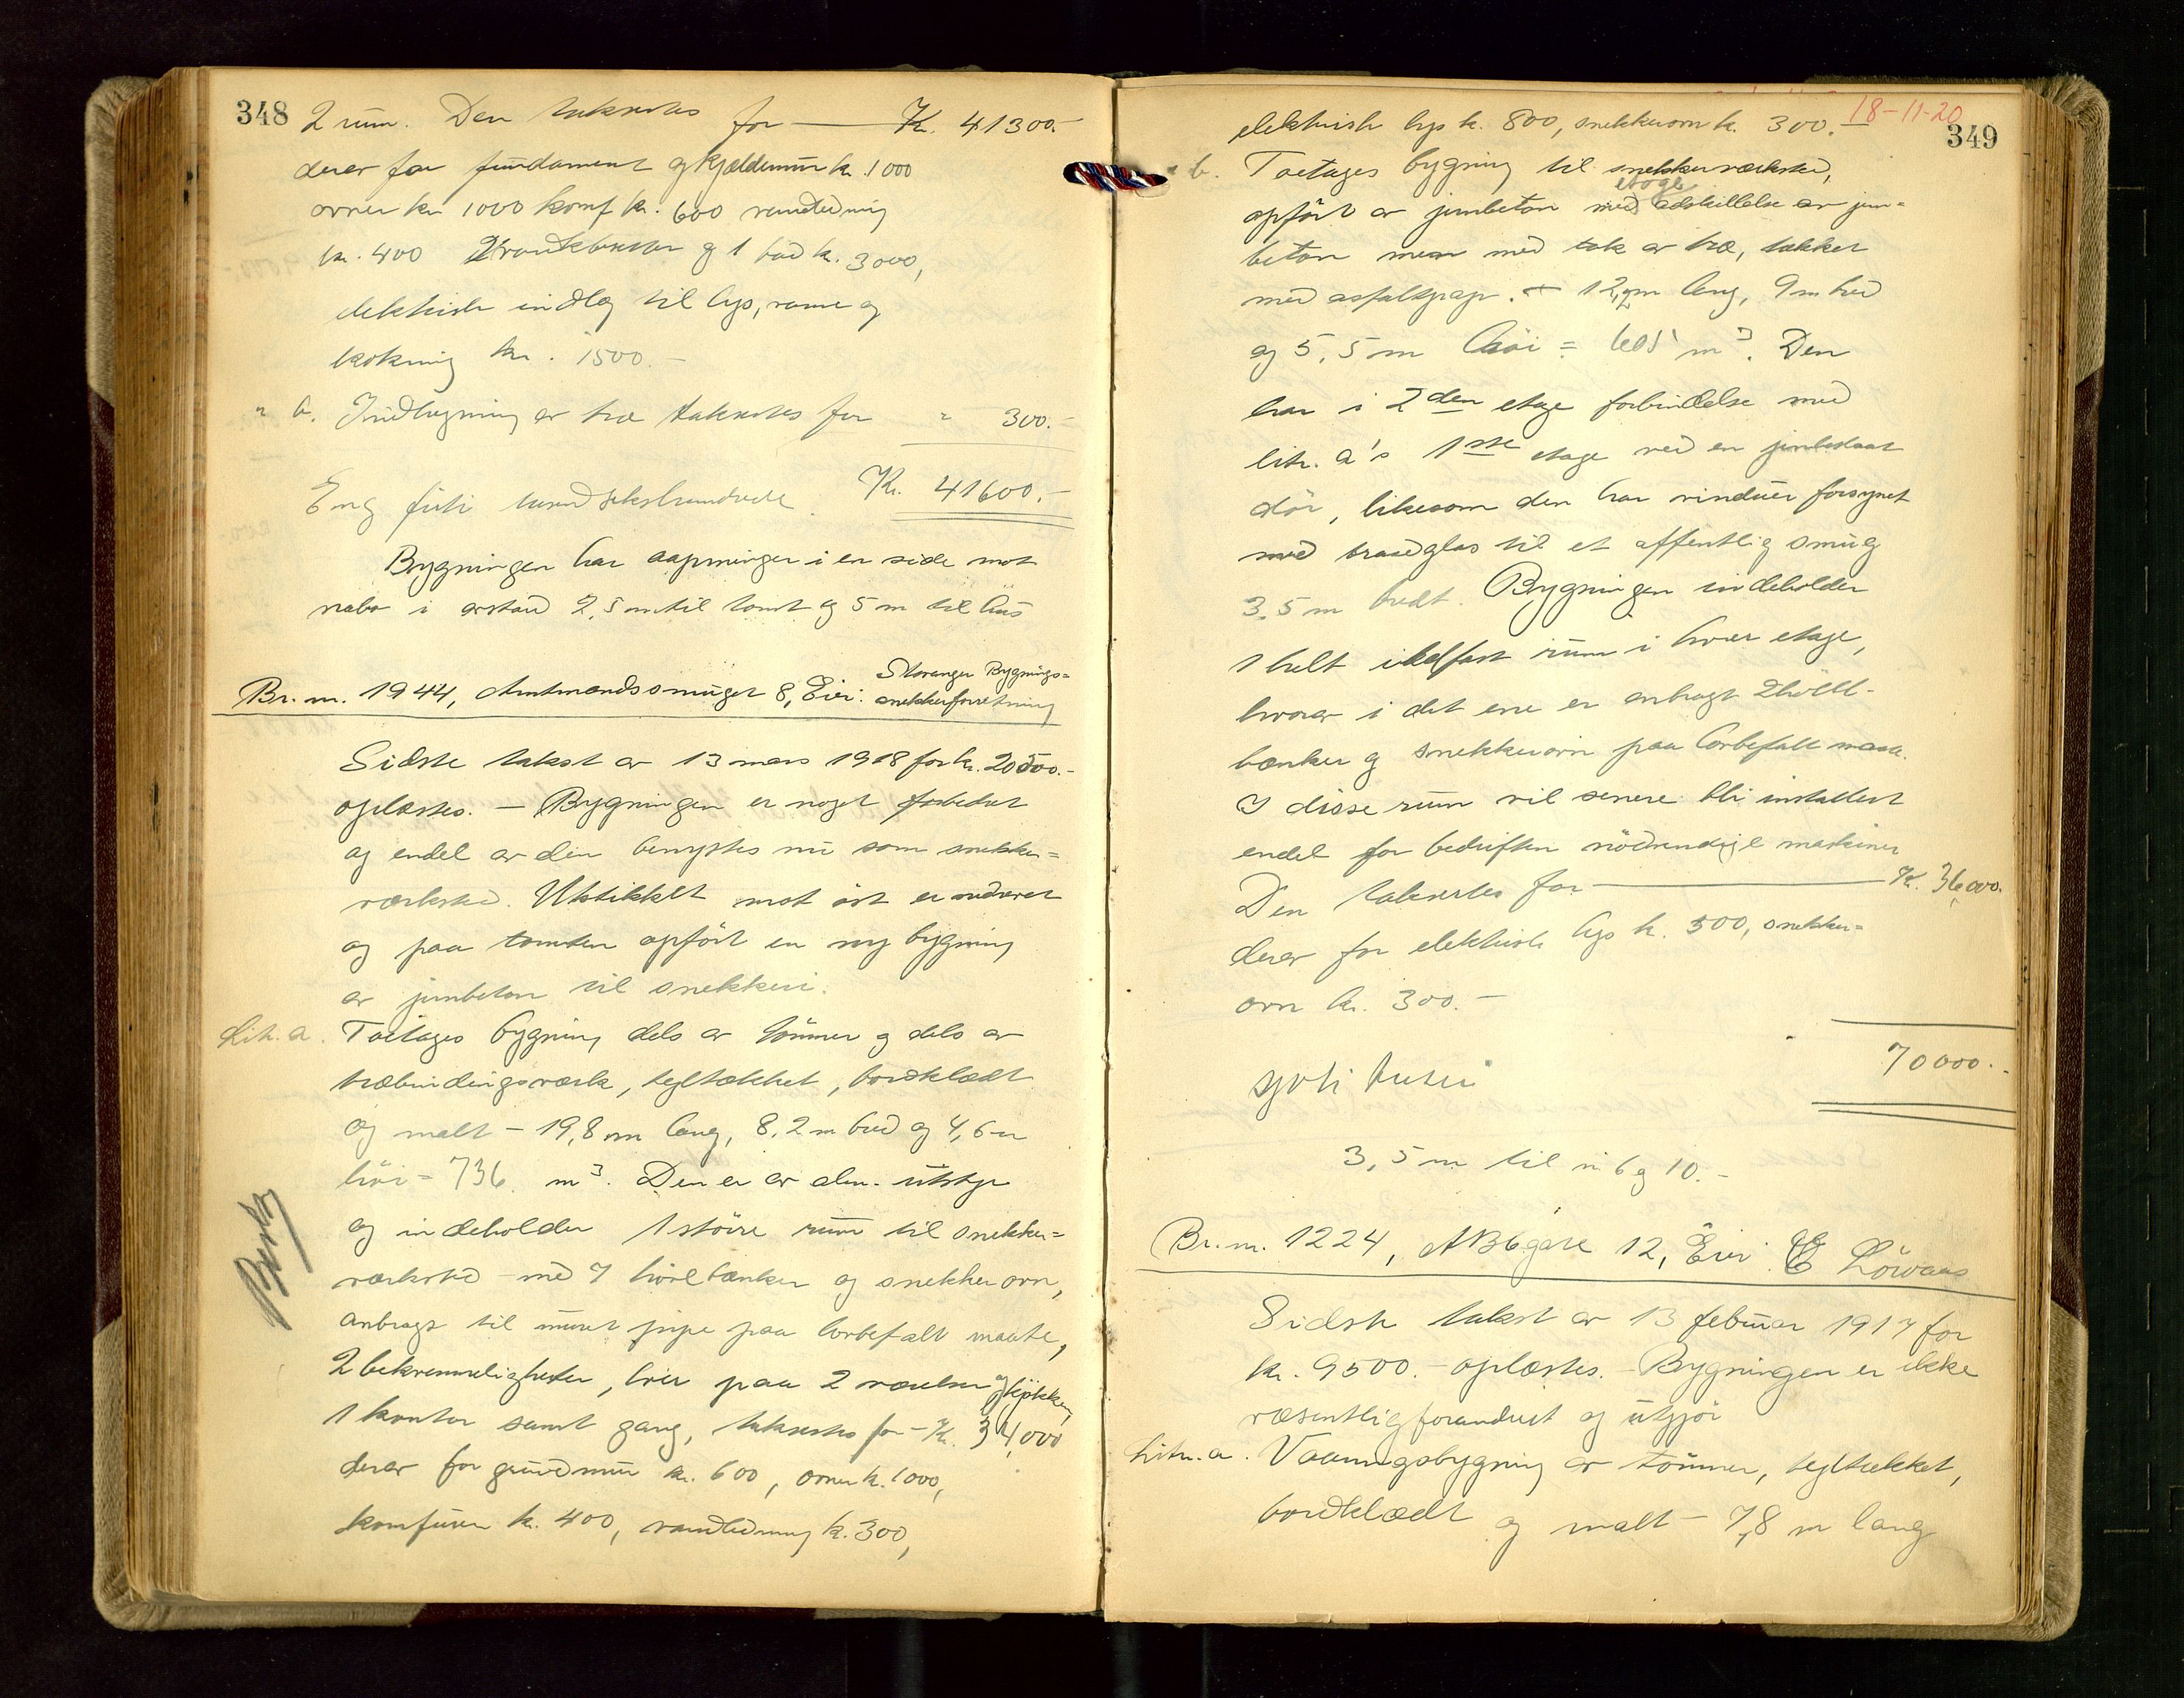 348
2 rum. Den takseres for — Kr. 41300.-
derav for fundament og kjældermur kr. 1000
ovner kr. 1000 komf kr. 600 vandledning
kr. 400 2 vandklosetter og 1 bad kr. 3000,
elektrisk indlæg til lys, varme og
kokning kr. 1500.-
" b. Indbygning av træ takseres for " 300.-
Kr. 41600.-
Eng førti tusend sekshundrede.
Bygningen har aapninger i en side mot
nabo i avstand 2,5 m til tomt og 5 m til hus
Br. nr. 1944, Amtmandssmuget 8, Eier: Stavanger Bygnings=
snekkerforretning
Sidste takst av 13 mars 1918 for kr. 20500.-
oplæstes. — Bygningen er noget forbedret
og endel av den benyttes nu som snekker=
verksted. Utstikket mot øst er nedrevet
og paa tomten opført en ny bygning
av jernbeton til snekkeri.
Litr. a. Toetages bygning dels av tømmer og dels av
træbindingsverk, tegltækket, bordklædt
og malt - 19,8 m lang, 8,2 m bred og 4,6 m
høi = 736 m³. Den er av alm. utstyr
og indeholder 1 større rum til snekker=
verksted - med 7 høvlbænker og snekkerovn,
anbragt til muret pipe paa lovbefalt maate,
2 bekvemmeligheter, hver paa 2 værelser og kjøkken,
1 kontor samt gang, takseres for - Kr. 34,000
derav for grundmur kr. 600, ovner kr. 1000,
komfurer kr. 400, vandledning kr. 300,
18-11-20
349
elektrisk lys kr. 800, snekkerovn kr. 300.-
" b. Toetages bygning til snekkerverksted,
opført av jernbeton med etage adskillelse av jern=
beton men med tak av træ, tækket
med asfaltpap. - 12,2 m lang, 9 m bred
og 5,5 m høi = 605 m³. Den
har i 2den etage forbindelse med
litr. a's 1ste etage ved en jernbeslaat
dør, likesom den har vinduer forsynet
med traadglas til et offentlig smug
3,5 m bredt. Bygningen indeholder
1 helt ildfast rum i hver etage,
hvorav i det ene er anbragt 2 høvl-
bænker og snekkerovn paa lovbefalt maate.
I disse rum vil senere bli installert
endel for bedriften nødvendige maskiner
Den takseres for — Kr. 36,000.
derav for elektrisk lys kr. 500, snekker=
ovn kr. 300.-
70000.-
sytti tusen
3,5 m til nr 6 og 10.-
Br. nr. 1224, AB6gate 12, Eier: E Løvaas
Sidste takst av 13 februar 1917 for
kr. 9500.- oplæstes. - Bygningen er ikke
væsentlig forandret og utgjør
Litr. a. Vaaningsbygning av tømmer, tegltækket,
bordklædt og malt - 7,8 m lang